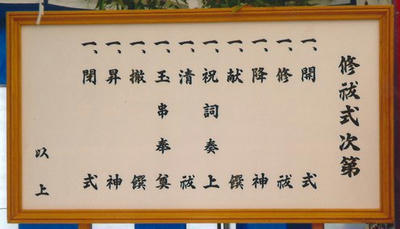 修祓式次第
一、開式
一、修祓
一、降神
一、献饌
一、祝詞奏上
一、清祓
一、玉串奉奠
一、撤饌
一、昇神
一、閉式
以上